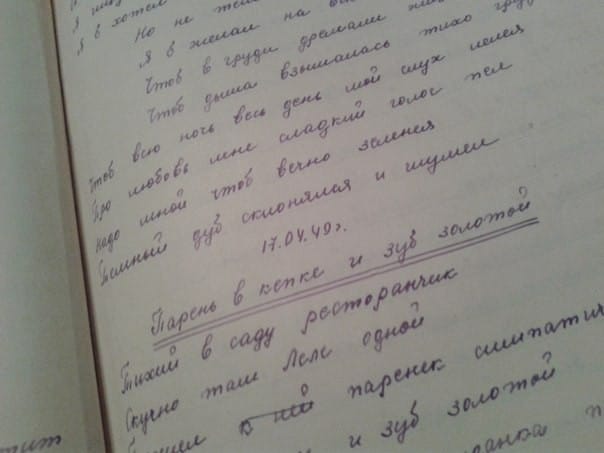 Я в хотел
Но не тем
Я в желал на
Чтоб в груди дремали
Чтоб дыша вздымалась тихо груд
Чтоб всю ночь весь день мой слух лелея
Про любовь мне сладкий голос пел
Надо мной чтоб вечно зеленея
Темный дуб склонялся и шумел
17.04.49г.
Парень в кепке и зуб золотой
Тихий в саду ресторанчик
Скучно там Леле одной
паренек симпатич
и зуб золотой